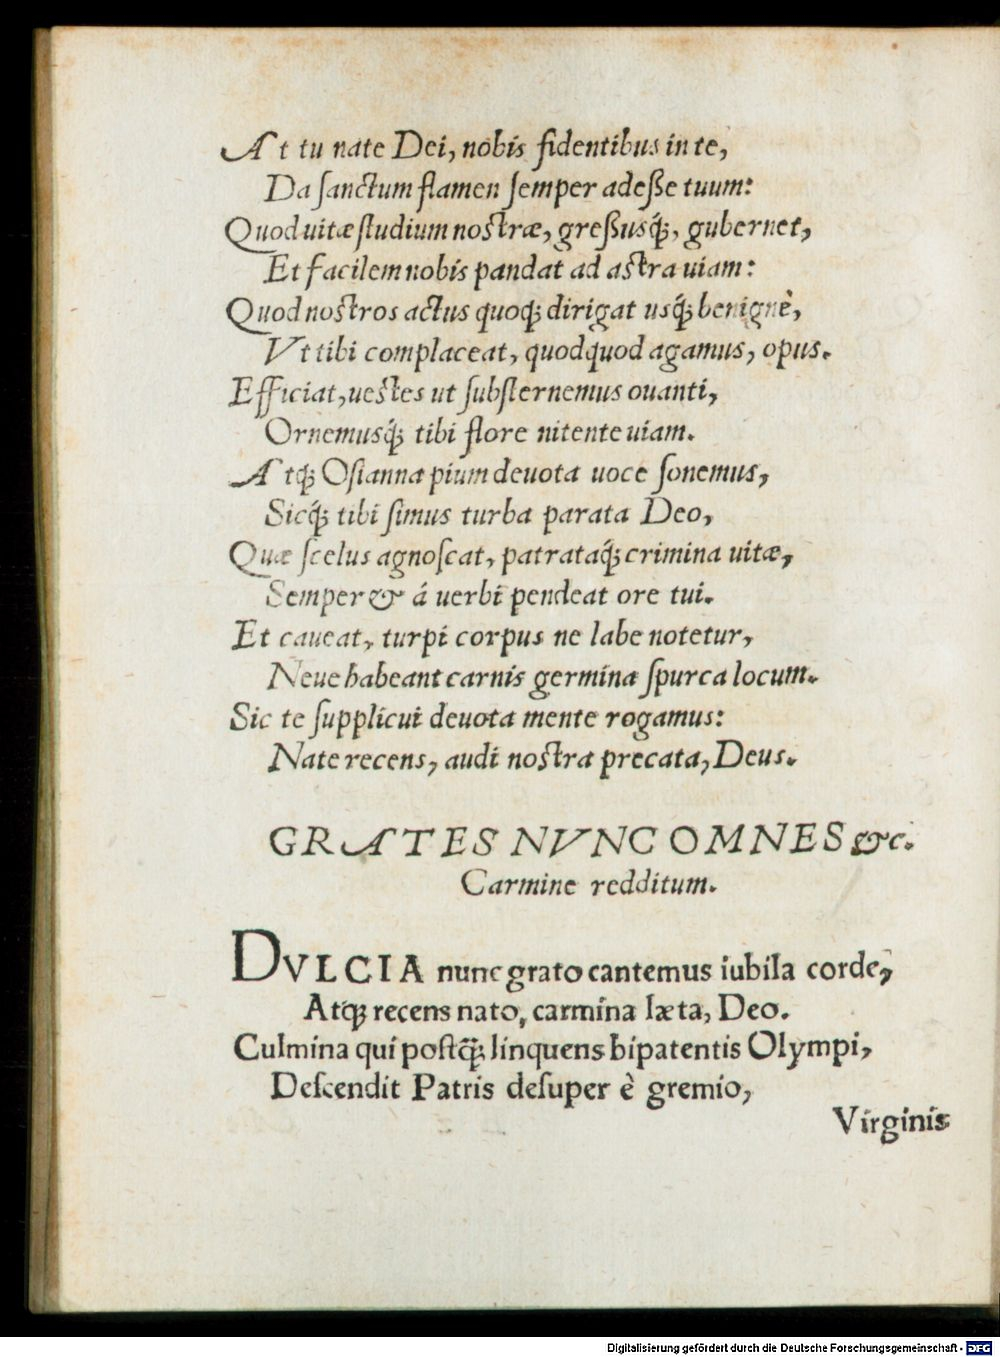 At tu nate Dei, nobis fidentibus in te,
Da ſanctum flamen ſemper adeſſe tuum:
Quod uitæ ſtudium noſtræ, greſſusq́;, gubernet,
Et facilem nobis pandat ad aſtra uiam:
Quod noſtros actus quoq; dirigat usq́; benignè,
Vt tibi complaceat, quodquod agamus, opus.
Efficiat, ueſtes ut ſubſternemus ouanti,
Ornemusq́; tibi flore nitente uiam.
Atq; Oſianna pium deuota uoce ſonemus,
Sicq́; tibi ſimus turba parata Deo,
Quæ ſcelus agnoſcat, patrataq́; crimina uitæ,
Semper & á uerbi pendeat ore tui.
Et caueat, turpi corpus ne labe notetur,
Neue habeant carnis germina ſpurca locum.
Sic te ſupplicui deuota mente rogamus:
Nate recens, audi noſtra precata, Deus.
GRATES NVNC OMNES &c.
Carmine redditum.
DVLCIA nunc grato cantemus iubila corde,
Atq; recens nato, carmina læta, Deo.
Culmina qui poſtq̃; linquens bipatentis Olympi,
Deſcendit Patris deſuper è gremio,
Virginis
Digitalisierung gefördert durch die Deutsche Forschungsgemeinschaft - DFG